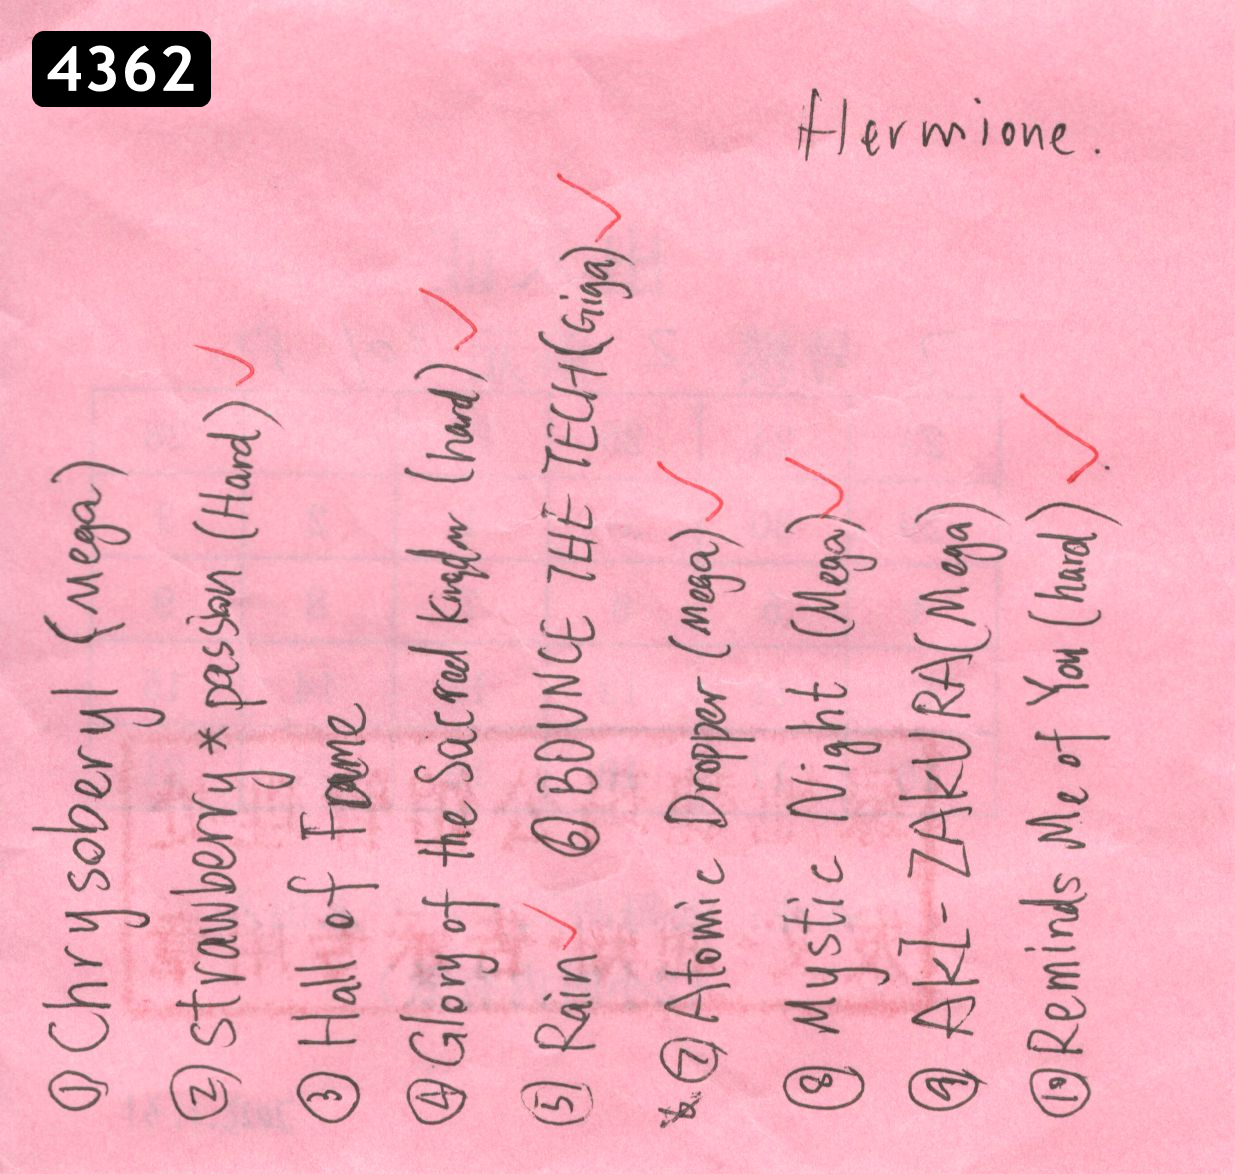 4362
Hermione.
① Chrysoberyl (Mega)
② strawberry * passion (Hard) ✓
③ Hall of Frame
④ Glory of the Sacred Kingdm (hard) ✓
⑤ Rain ✓ ⑥ BOUNCE THE TECH (Giga) ✓
⑦ Atomic Dropper (Mega) ✓
⑧ Mystic Night (Mega) ✓
⑨ AKI-ZAKURA (Mega)
⑩ Reminds Me of You (hard) ✓